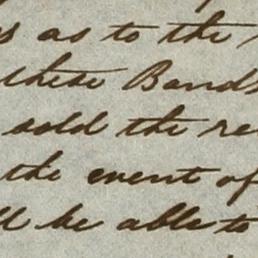 as to the
these Bonds
sold the re
the event of
ll be able to